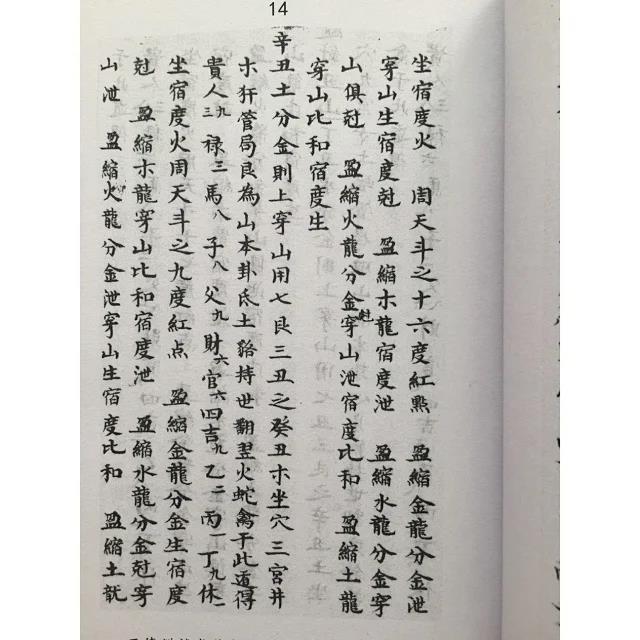 14
坐宿度火　周天斗之十六度紅點　盈縮金龍分金泄
穿山生宿度尅　盈縮木龍宿度泄　盈縮水龍分金穿
山俱尅　盈縮火龍分金尅穿山泄宿度比和　盈縮土龍
穿山比和宿度生
辛丑土分金則上穿山用七艮三丑之癸丑木坐穴三宮井
木犴管局艮為山本卦氐土貉持世翻翌火蛇禽于此遁得
貴人三九祿三馬八子八父九財六官六四吉九乙二丙一丁九休一
坐宿度火周天斗之九度紅点　盈縮金龍分金生宿度
尅　盈縮木龍穿山比和宿度泄　盈縮水龍分金尅穿
山泄　盈縮火龍分金泄穿山生宿度比和　盈縮土龍